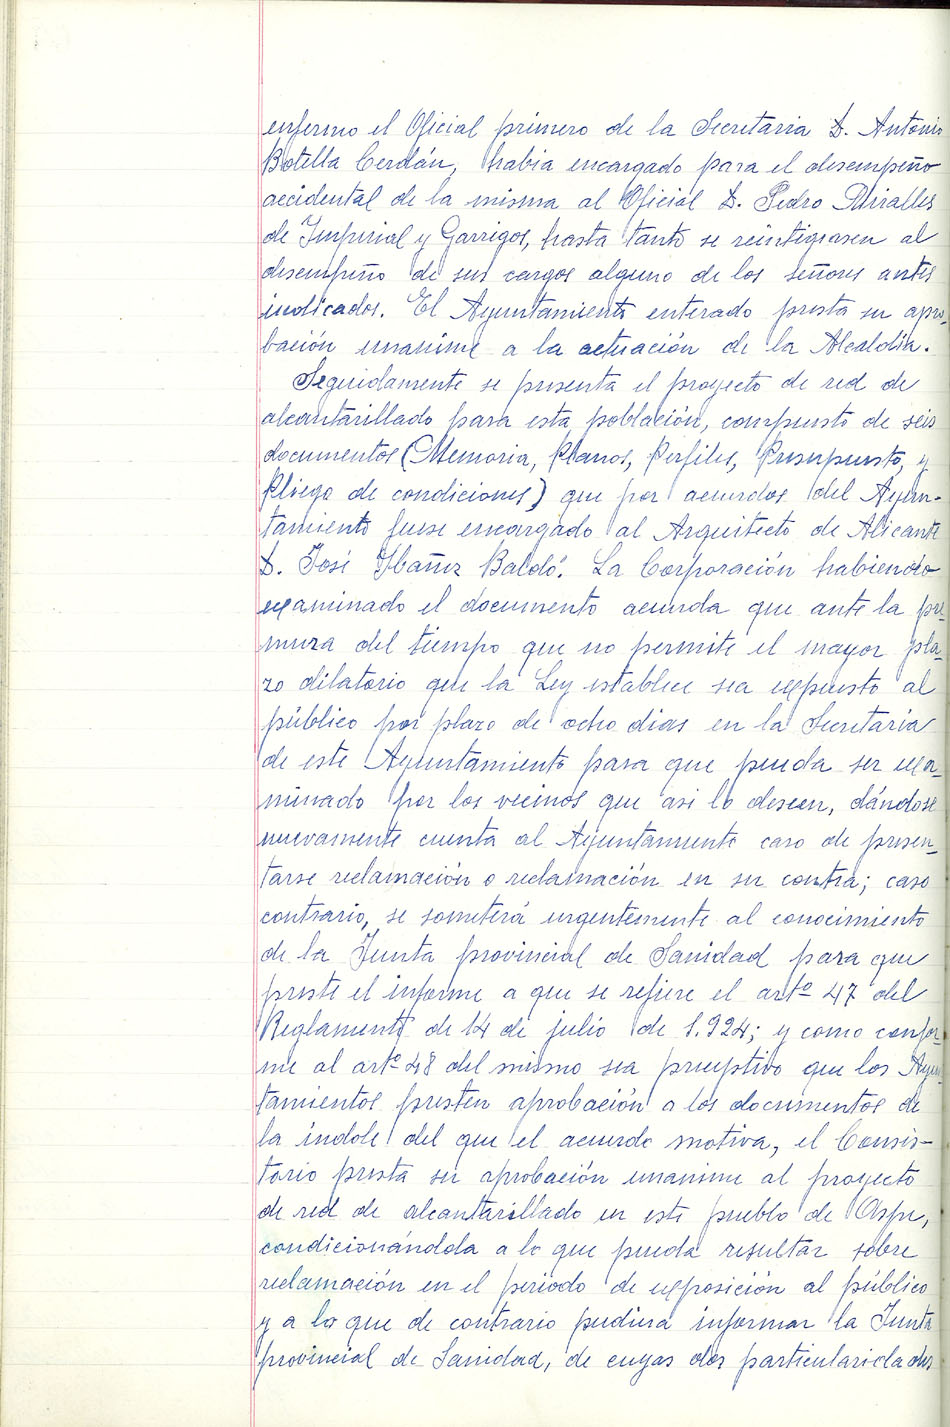 enfermo el Oficial primero de la Secretaria D. Antonio
Botella Cerdán, habia encargado para el desempeño
accidental de la misma al Oficial D. Pedro Miralles
de Imperial y Garrigos, hasta tanto se reintegrasen al
desempeño de sus cargos alguno de los señores antes
indicados. El Ayuntamiento enterado presta su apro-
bación unanime a la actuación de la Alcaldía.
Seguidamente se presenta el proyecto de red de
alcantarillado para esta población, compuesto de seis
documentos (Memoria, Planos, Perfiles, Presupuesto, y
Pliego de condiciones) que por acuerdos del Ayun-
tamiento fuese encargado al Arquitecto de Alicante
D. José Ibañez Baldó. La Corporación habiendo
examinado el documento acuerda que ante la pre-
mura del tiempo que no permite el mayor pla-
zo dilatorio que la Ley establece sea expuesto al
público por plazo de ocho dias en la Secretaria
de este Ayuntamiento para que pueda ser exa-
minado por los vecinos que asi lo deseen, dándose
nuevamente cuenta al Ayuntamiento caso de presen-
tarse reclamación o reclamación en su contra; caso
contrario, se someterá urgentemente al conocimiento
de la Junta provincial de Sanidad para que
preste el informe a que se refiere el artº 47 del
Reglamento de 14 de julio de 1.924; y como confor-
me al artº 48 del mismo sea preceptivo que los Ayun-
tamientos presten aprobación a los documentos de
la indole del que el acuerdo motiva, el Consis-
torio presta su aprobación unanime al proyecto
de red de alcantarillado en este pueblo de Aspe,
condicionándola a lo que pueda resultar sobre
reclamación en el periodo de exposición al público
y a lo que de contrario pudiera informar la Junta
provincial de Sanidad, de cuyas dos particularidades